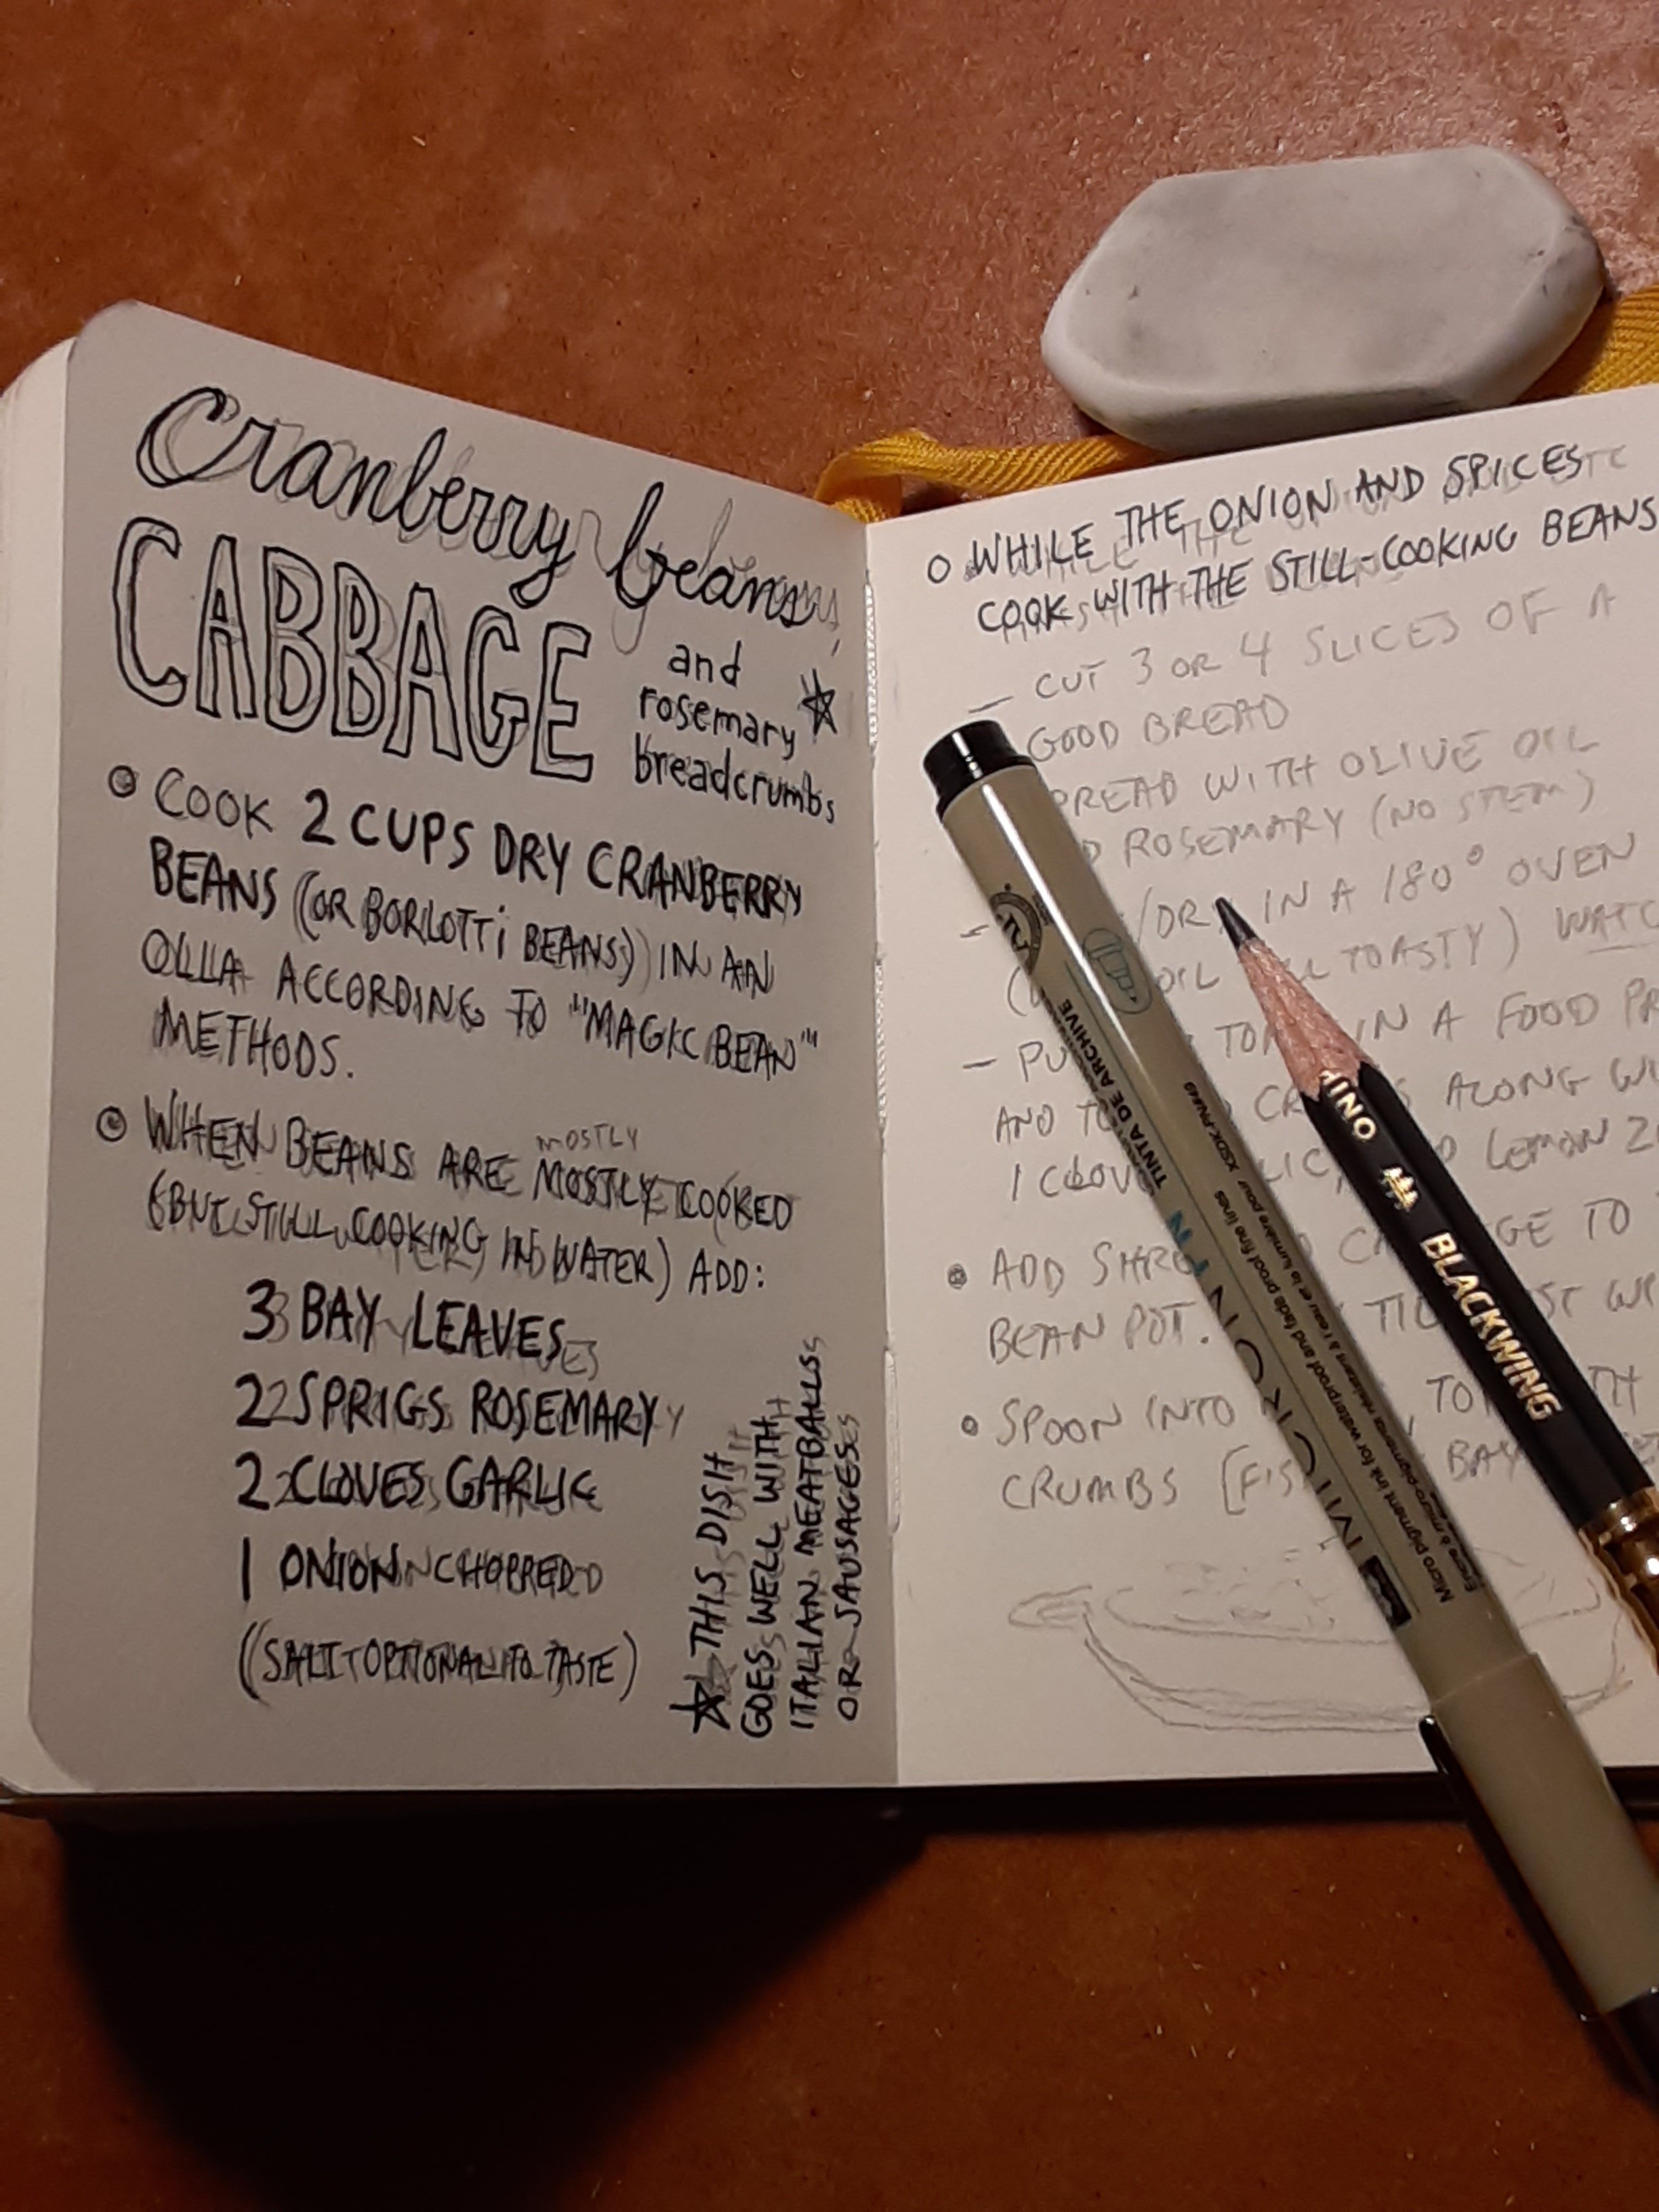 Cranberry beans,
CABBAGE
and
rosemary
breadcrumbs
COOK 2 CUPS DRY CRANBERRY
BEANS (OR BORLOTTI BEANS) IN AN
OLLA ACCORDING TO "MAGIC BEAN"
METHODS.
WHEN BEANS ARE MOSTLY COOKED
(BUT STILL COOKING IN WATER) ADD:
3 BAY LEAVES
2 SPRIGS ROSEMARY
2 CLOVES GARLIC
1 ONION CHOPPED
(SALT OPTIONAL TO TASTE)
THIS DISH
GOES WELL WITH
ITALIAN MEATBALLS
OR SAUSAGES
WHILE THE ONION AND SPICES
COOK WITH THE STILL-COOKING BEANS
— CUT 3 OR 4 SLICES OF A
GOOD BREAD
WITH OLIVE OIL
ROSEMARY (NO STEM)
IN A 180° OVEN
OIL TOASTY)
IN A FOOD
AND ALONG
1 CLOVE LEMON
ADD TO
BEAN POT.
SPOON INTO
CRUMBS
TINTA DE ARCHIVE
XSDK-PN#49
MICRON
Micro pigment ink for waterproof and fade proof fine lines
BLACKWING